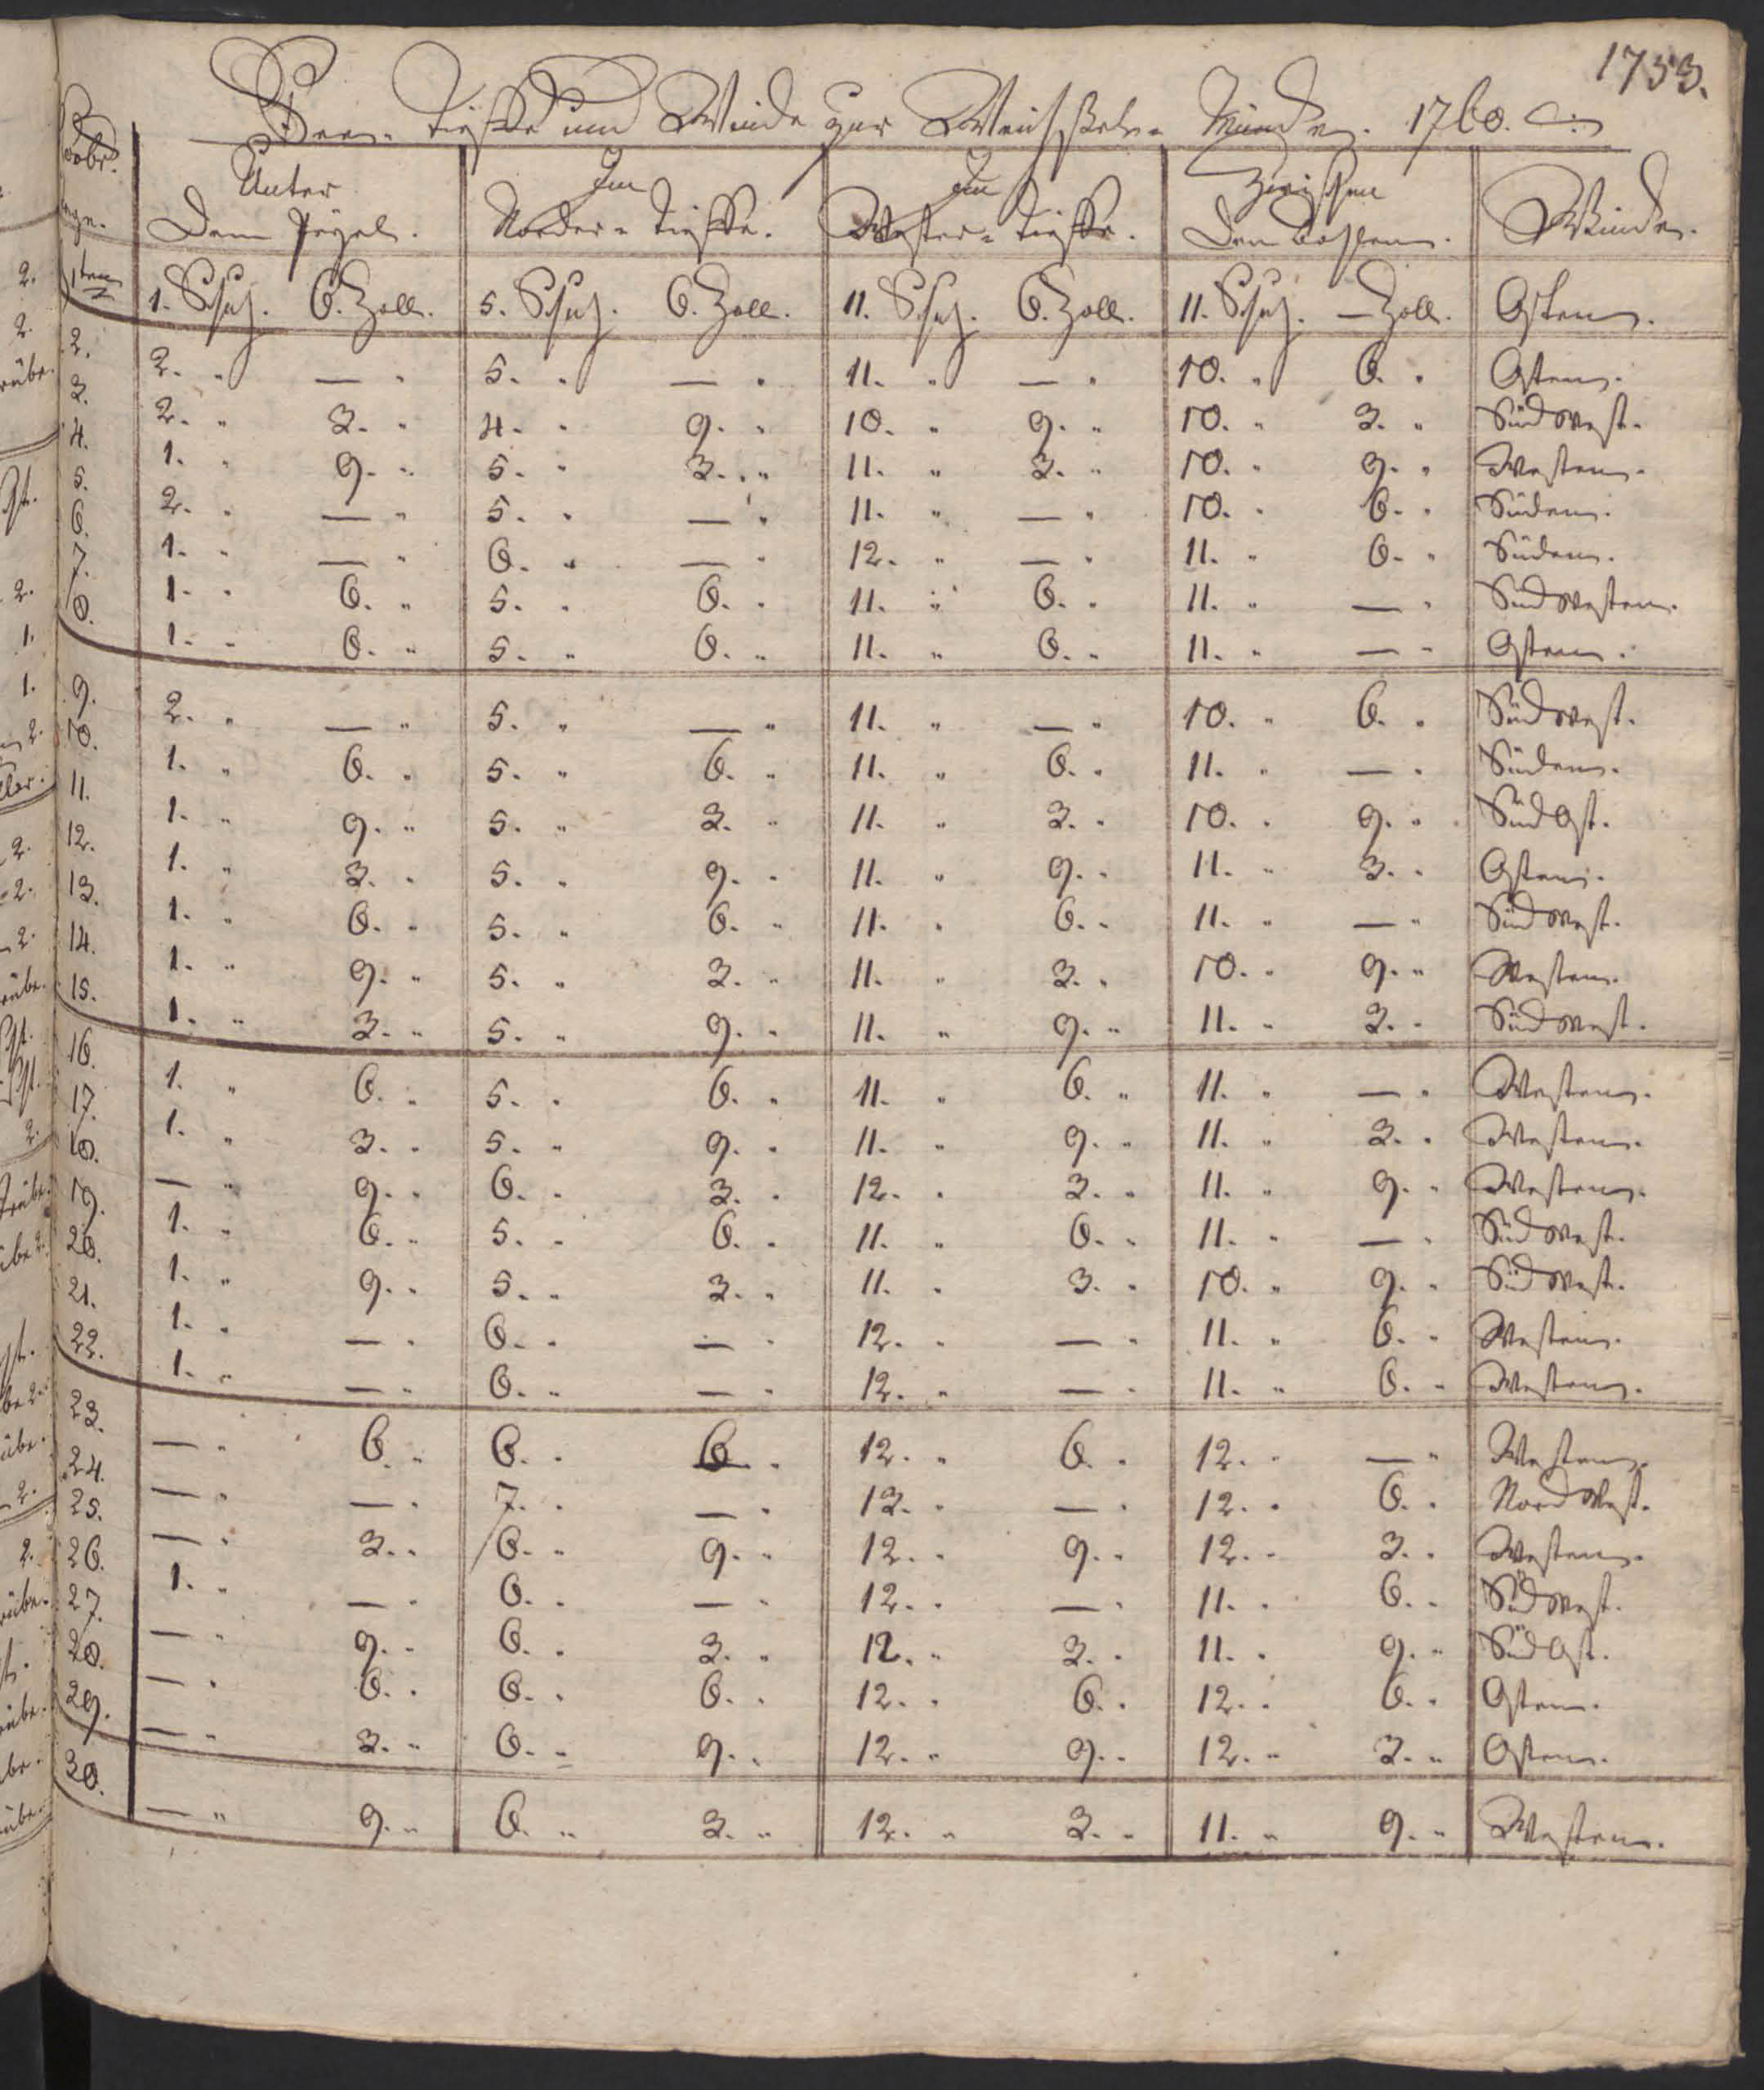 1753.
See= Tieffe und Winde zur Weichsel= Münde. 1760.
Unter Dem Pegel. | Im Norder= Tieffe. | Im Wester= Tieffe. | Zwischen Den Bohlen. | Winde.
1ten 1. Schuh. 6. Zoll. 5. Schuh. 6. Zoll. 11. Schuh. 6. Zoll. 11. Schuh. — Zoll. Osten.
2. 2. " — " 5. " — " 11. " — " 10. " 6. " Osten.
3. 2. " 3. " 4. " 9. " 10. " 9. " 10. " 3. " Süd West.
4. 1. " 9. " 5. " 3. " 11. " 3. " 10. " 9. " Westen.
5. 2. " — " 5. " — " 11. " — " 10. " 6. " Süden.
6. 1. " — " 6. " — " 12. " — " 11. " 6. " Süden.
7. 1. " 6. " 5. " 6. " 11. " 6. " 11. " — " Süd Westen.
8. 1. " 6. " 5. " 6. " 11. " 6. " 11. " — " Osten.
9. 2. " — " 5. " — " 11. " — " 10. " 6. " Süd West.
10. 1. " 6. " 5. " 6. " 11. " 6. " 11. " — " Süden.
11. 1. " 9. " 5. " 3. " 11. " 3. " 10. " 9. " Süd Ost.
12. 1. " 3. " 5. " 9. " 11. " 9. " 11. " 3. " Osten.
13. 1. " 6. " 5. " 6. " 11. " 6. " 11. " — " Süd West.
14. 1. " 9. " 5. " 3. " 11. " 3. " 10. " 9. " Westen.
15. 1. " 3. " 5. " 9. " 11. " 9. " 11. " 3. " Süd West.
16. 1. " 6. " 5. " 6. " 11. " 6. " 11. " — " Westen.
17. 1. " 3. " 5. " 9. " 11. " 9. " 11. " 3. " Westen.
18. — " 9. " 6. " 3. " 12. " 3. " 11. " 9. " Westen.
19. 1. " 6. " 5. " 6. " 11. " 6. " 11. " — " Süd West.
20. 1. " 9. " 5. " 3. " 11. " 3. " 10. " 9. " Süd West.
21. 1. " — " 6. " — " 12. " — " 11. " 6. " Westen.
22. 1. " — " 6. " — " 12. " — " 11. " 6. " Westen.
23. — " 6. " 6. " 6. " 12. " 6. " 12. " — " Westen.
24. — " — " 7. " — " 13. " — " 12. " 6. " Nord West.
25. — " 3. " 6. " 9. " 12. " 9. " 12. " 3. " Westen.
26. 1. " — " 6. " — " 12. " — " 11. " 6. " Süd West.
27. — " 9. " 6. " 3. " 12. " 3. " 11. " 9. " Süd Ost.
28. — " 6. " 6. " 6. " 12. " 6. " 12. " 6. " Osten.
29. — " 3. " 6. " 9. " 12. " 9. " 12. " 3. " Osten.
30. — " 9. " 6. " 3. " 12. " 3. " 11. " 9. " Westen.